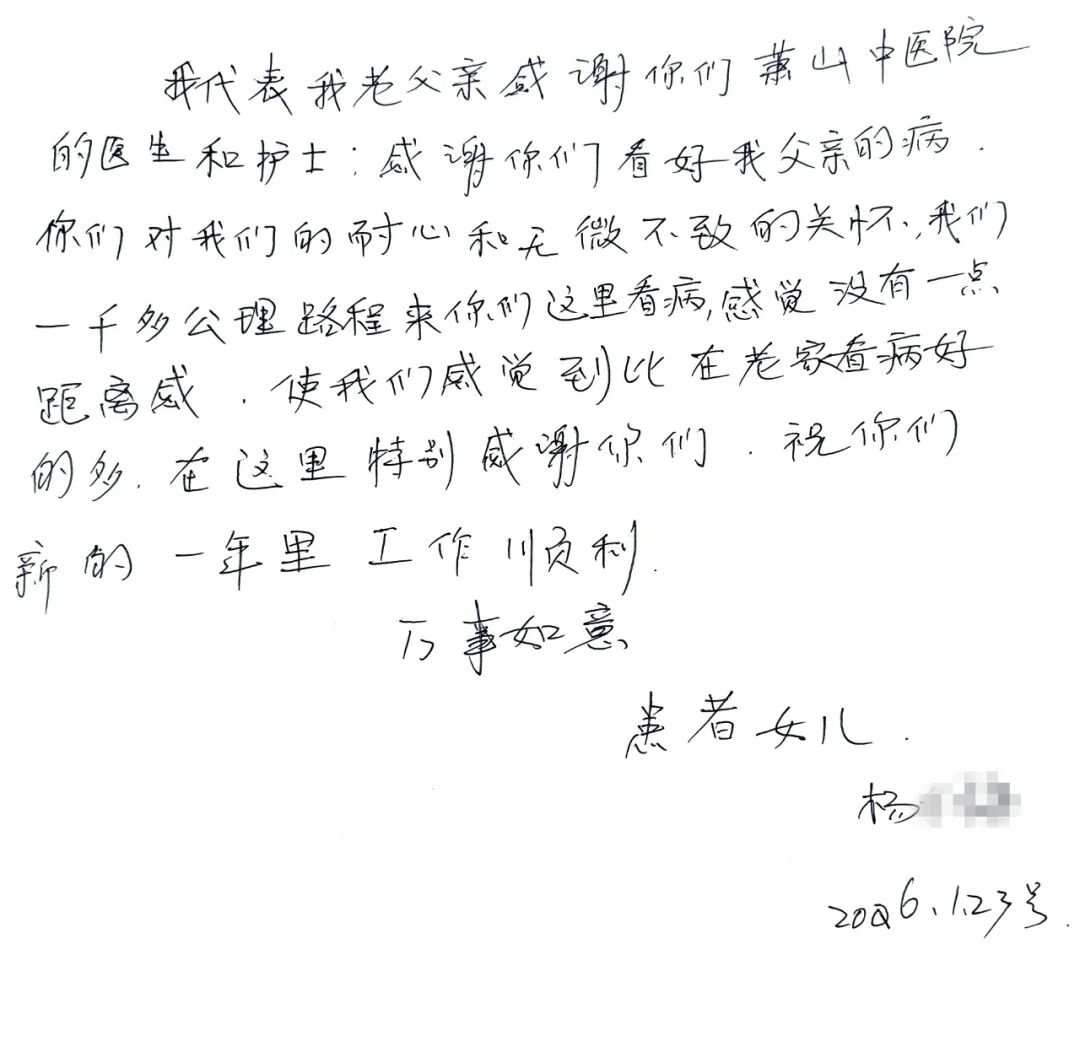 我代表我老父亲感谢你们萧山中医院
的医生和护士:感谢你们看好我父亲的病.
你们对我们的耐心和无微不致的关怀,我们
一千多公理路程来你们这里看病,感觉没有一点
距离感.使我们感觉到比在老家看病好
的多.在这里特别感谢你们.祝你们
新的一年里工作顺利.
万事如意
患者女儿.
杨
2026.1.23号.